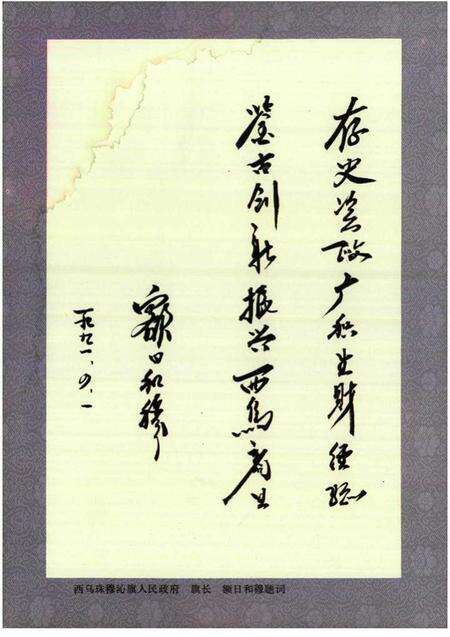 存史资政广积生财经验
鉴古创新振兴西烏商业
额日和穆
一九九一.四.一
西乌珠穆沁旗人民政府 旗长 额日和穆题词